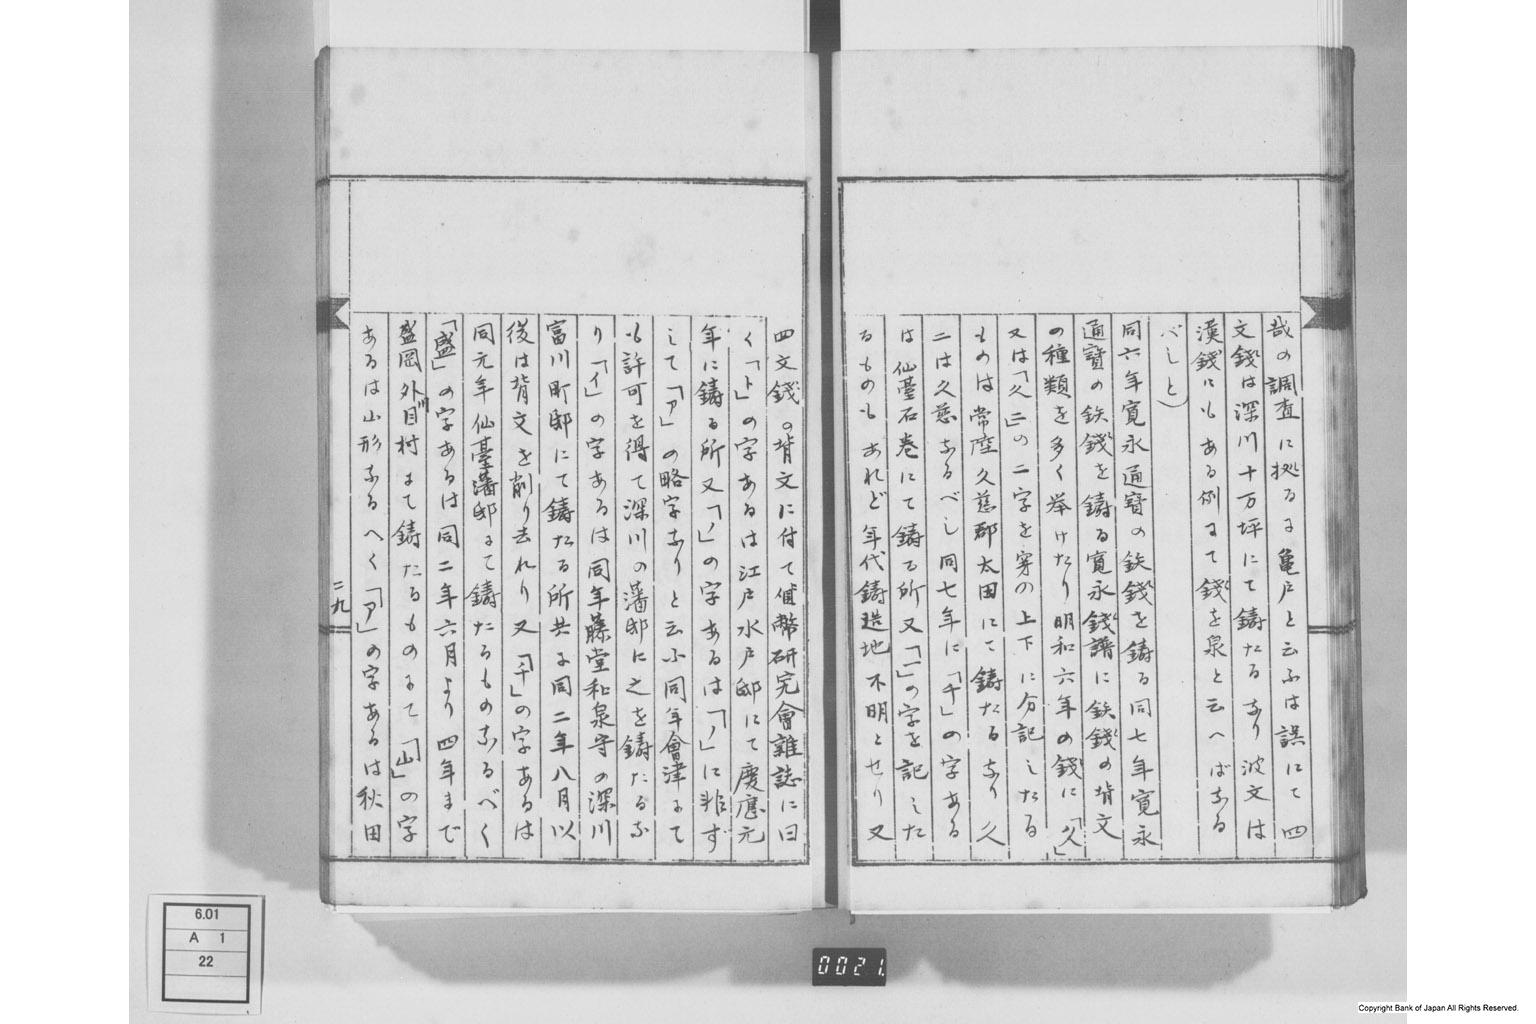 哉の調査に拠るに亀戸と云ふは誤にて四
文錢は深川十万坪にて鑄たるなり波文は
漢錢にもある例にて錢を泉と云へばなる
べしと)
同六年寛永通寳の鉄錢を鑄る同七年寛永
通寳の鉄錢を鑄る寛永錢譜に鉄錢の背文
の種類を多く挙けたり明和六年の錢に「久」
又は「久二」の二字を穿の上下に分記したる
ものは常陸久慈郡太田にて鑄たるなり久
二は久慈なるべし同七年に「千」の字ある
は仙臺石巻にて鑄る所又「一」の字を記した
るものもあれど年代鑄造地不明とせり又
四文錢の背文に付て貨幣研究會雜誌に曰
く「ト」の字あるは江戸水戸邸にて慶應元
年に鑄る所又「ノ」の字あるは「ノ」に非ず
して「ア」の略字なりと云ふ同年會津にて
も許可を得て深川の藩邸に之を鑄たるな
り「イ」の字あるは同年藤堂和泉守の深川
富川町邸にて鑄たる所共に同二年八月以
後は背文を削り去れり又「千」の字あるは
同元年仙臺藩邸にて鑄たるものなるべく
「盛」の字あるは同二年六月より四年まで
盛岡外川目村にて鑄たるものにて「山」の字
あるは山形なるへく「ア」の字あるは秋田
二九
6.01
A 1
22
0021
Copyright Bank of Japan All Rights Reserved.